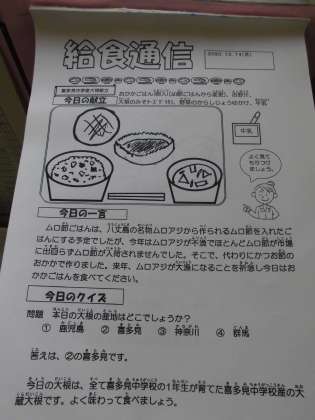 給食通信
喜多見中学校大根献立
今日の献立
牛乳
よく見て
もりつけ
ましょう。
今日の一言
ムロ節ごはんは、八丈島の名物ムロアジから作られるムロ節を入れたご
はんにする予定でしたが、今年はムロアジが不漁でほとんどムロ節が市場
に出回らずムロ節が入荷されませんでした。そこで、代わりにかつお節の
おかかで作りました。来年、ムロアジが大漁になることを祈念し今日はお
かかごはんを食べてください。
今日のクイズ
問題 本日の大根の産地はどこでしょうか?
① 鹿児島 ② 喜多見 ③ 神奈川 ④ 群馬
答えは、②の喜多見です。
今日の大根は、全て喜多見中学校の1年生が育てた喜多見中学校産の大
蔵大根です。よく味わって食べましょう。